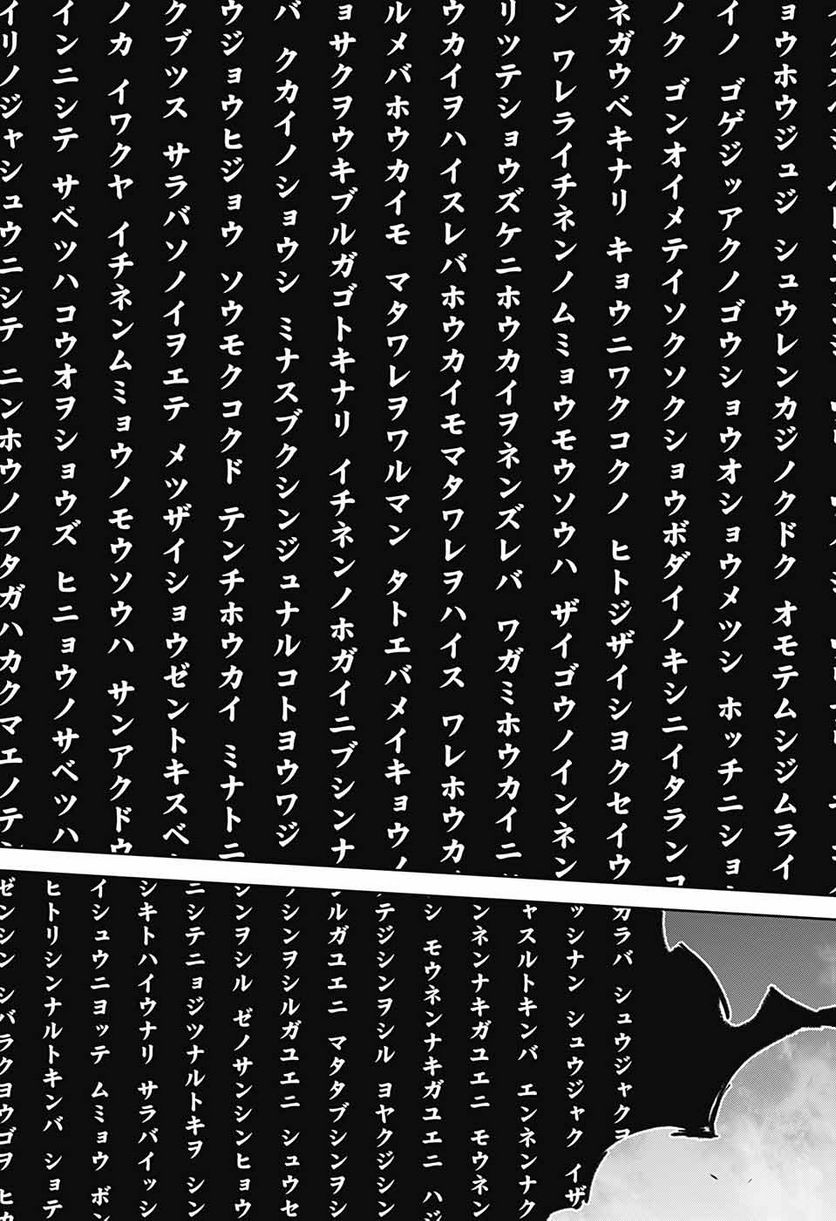 ョウホウジュジ シュウレンカジノクドク オモテムシジムライ
イノ ゴゲジッアクノゴウショウオショウメツシ ホッチニショ
ノク ゴンオイメテイソクソクショウボダイノキシニイタランコ
ネガウベキナリ キョウニワクコクノ ヒトジザイシヨクセイウ
ン ワレライチネンノムミョウモウソウハ ザイゴウノインネン
リツテショウズケニホウカイヲネンズレバ ワガミホウカイニ
ウカイヲハイスレバホウカイモマタワレヲハイス ワレホウカ
ルメバホウカイモ マタワレヲワルマン タトエバメイキョウノ
ョサクヲウキブルガゴトキナリ イチネンノホガイニブシンナ
バ クカイノショウシ ミナスブクシンジュナルコトヨウワジ
ウジョウヒジョウ ソウモクコクド テンチホウカイ ミナトニ
クブツス サラバソノイヲエテ メツザイショウゼントキスベ
ノカ イワクヤ イチネンムミョウノモウソウハ サンアクドウ
インニシテ サベツハコウオヲショウズ ヒニョウノサベツハ
イリノジャシュウニシテ ニンホウノフタガハカクマエノテ
カラバ シュウジャクヨ
ッシナン シュウジャク イザ
ャスルトキンバ エンネンナク
ンネンナキガユエニ モウネン
シ モウネンナキガユエニ ハジ
テジシンヲシル ヨヤクジシン
ルガユエニ マタタブシンヲシ
ノシンヲシルガユエニ シュウセ
シンヲシル ゼノサンシンヒョウ
ニシテニョジツナルトキヲ シン
シキトハイウナリ サラバイッシ
イシュウニヨッテ ムミョウ ボン
ヒトリシンナルトキンバ ショテ
ゼンシン シバラクヨウゴヲ ヒカ